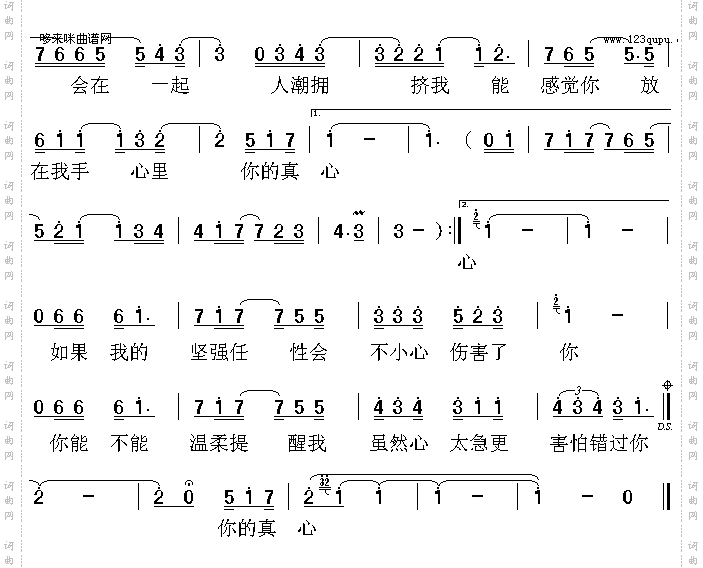 哆来咪曲谱网 www.123qupu.
7 6 6 5 5 4 3 | 3 0 3 4 3 | 3 2 2 1 1 2. | 7 6 5 5. 5
会在 一起 人潮拥 挤我 能 感觉你 放
6 1 1 1 3 2 | 2 5 1 7 | 1. 1 - | 1. ( 0 1 | 7 1 7 7 6 5 |
在我手 心里 你的真 心
5 2 1 1 3 4 | 4 1 7 7 2 3 | 4. 3 | 3 - ) :| 2. 2 1 - | 1 -
心
0 6 6 6 1. | 7 1 7 7 5 5 | 3 3 3 5 2 3 | 2 1 -
如果 我的 坚强任 性会 不小心 伤害了 你
0 6 6 6 1. | 7 1 7 7 5 5 | 4 3 4 3 1 1 | 3 4 3 4 3 1. D.S.
你能 不能 温柔提 醒我 虽然心 太急更 害怕错过你
2 - | 2 0 5 1 7 | 2 32 1 1 | 1 - 1 | 1 - 0
你的真 心
词曲网